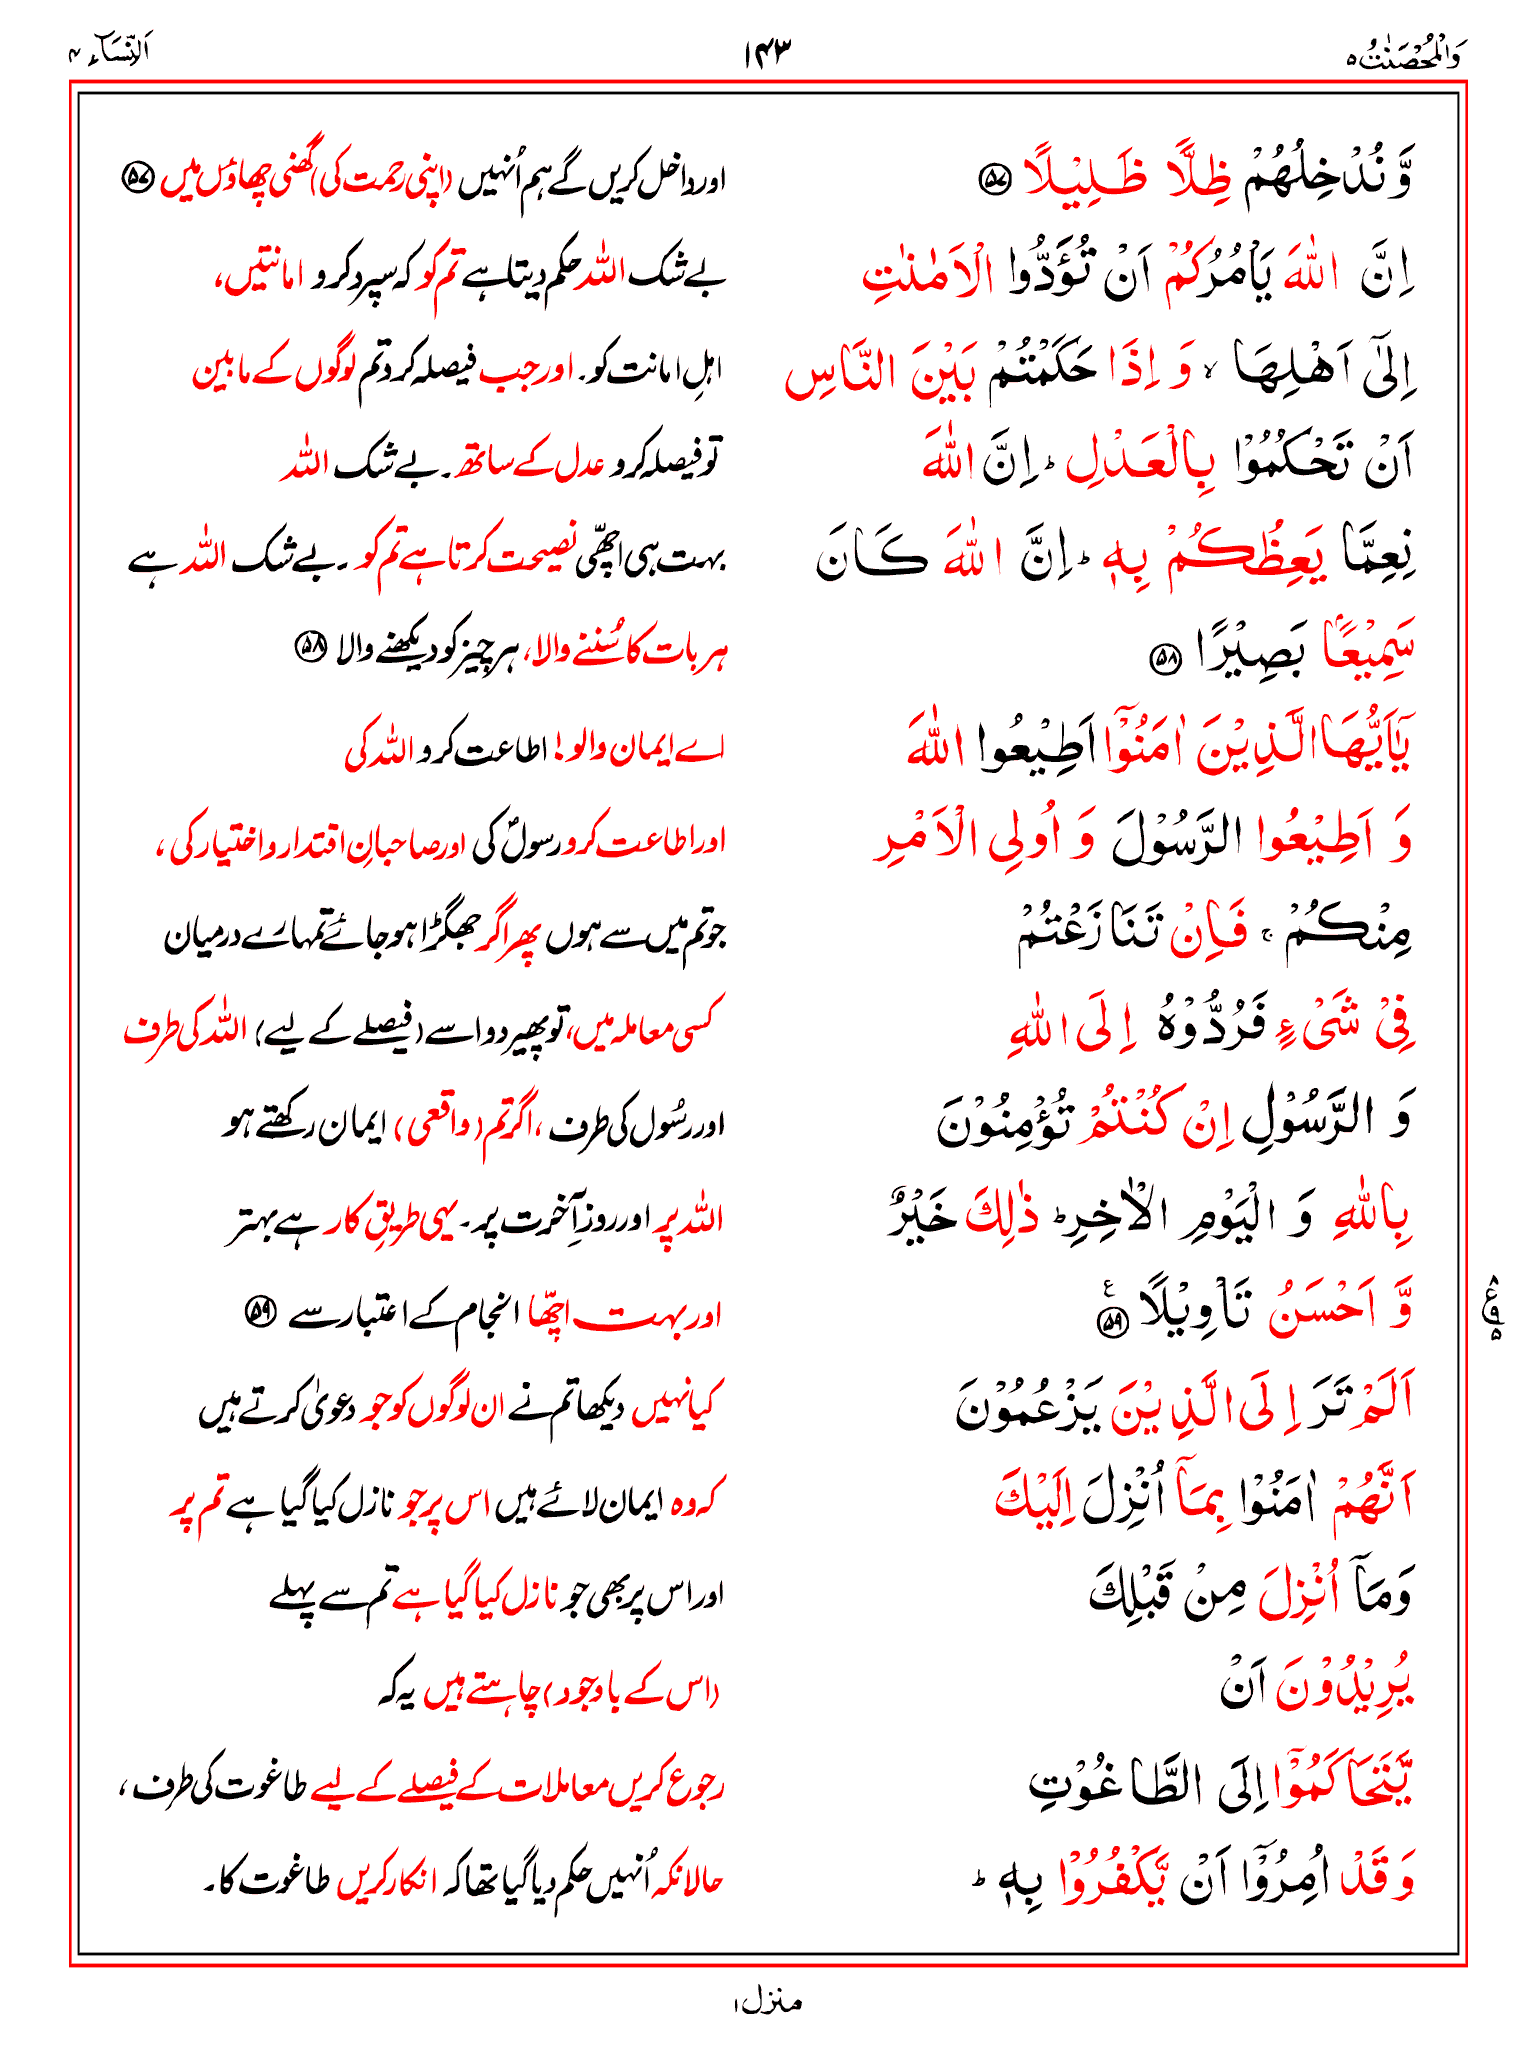 وَالْمُحْصَنٰتُ ۵
۱۴۳
اَلنِّسَآء ۴
وَّ نُدْخِلُهُمْ ظِلًّا ظَلِيْلًا ۵۷
اور داخل کریں گے ہم اُنہیں (اپنی رحمت کی) گھنی چھاؤں میں ۵۷
اِنَّ اللّٰهَ يَاْمُرُكُمْ اَنْ تُؤَدُّوا الْاَمٰنٰتِ
بے شک اللہ حکم دیتا ہے تم کو کہ سپرد کرو امانتیں،
اِلٰٓى اَهْلِهَا ۙ وَ اِذَا حَكَمْتُمْ بَيْنَ النَّاسِ
اہلِ امانت کو۔ اور جب فیصلہ کرو تم لوگوں کے مابین
اَنْ تَحْكُمُوْا بِالْعَدْلِ ؕ اِنَّ اللّٰهَ
تو فیصلہ کرو عدل کے ساتھ۔ بے شک اللہ
نِعِمَّا يَعِظُكُمْ بِهٖ ؕ اِنَّ اللّٰهَ كَانَ
بہت ہی اچھّی نصیحت کرتا ہے تم کو۔ بے شک اللہ ہے
سَمِيْعًۢا بَصِيْرًا ۵۸
ہر بات کا سُننے والا، ہر چیز کو دیکھنے والا ۵۸
يٰٓاَيُّهَا الَّذِيْنَ اٰمَنُوْٓا اَطِيْعُوا اللّٰهَ
اے ایمان والو! اطاعت کرو اللہ کی
وَ اَطِيْعُوا الرَّسُوْلَ وَ اُولِى الْاَمْرِ
اور اطاعت کرو رسولؐ کی اور صاحبانِ اقتدار و اختیار کی،
مِنْكُمْ ۚ فَاِنْ تَنَازَعْتُمْ
جو تم میں سے ہوں پھر اگر جھگڑا ہو جائے تمہارے درمیان
فِىْ شَىْءٍ فَرُدُّوْهُ اِلَى اللّٰهِ
کسی معاملہ میں، تو پھیر دو اسے (فیصلے کے لیے) اللہ کی طرف
وَ الرَّسُوْلِ اِنْ كُنْتُمْ تُؤْمِنُوْنَ
اور رسُول کی طرف، اگر تم (واقعی) ایمان رکھتے ہو
بِاللّٰهِ وَ الْيَوْمِ الْاٰخِرِ ؕ ذٰلِكَ خَيْرٌ
اللہ پر اور روزِ آخرت پر۔ یہی طریقِ کار ہے بہتر
وَّ اَحْسَنُ تَاْوِيْلًا ۵۹ ع
اور بہت اچھّا انجام کے اعتبار سے ۵۹
۸ ع ۹ ۵
اَلَمْ تَرَ اِلَى الَّذِيْنَ يَزْعُمُوْنَ
کیا نہیں دیکھا تم نے ان لوگوں کو جو دعویٰ کرتے ہیں
اَنَّهُمْ اٰمَنُوْا بِمَآ اُنْزِلَ اِلَيْكَ
کہ وہ ایمان لائے ہیں اس پر جو نازل کیا گیا ہے تم پر
وَمَآ اُنْزِلَ مِنْ قَبْلِكَ
اور اس پر بھی جو نازل کیا گیا ہے تم سے پہلے
يُرِيْدُوْنَ اَنْ
(اس کے باوجود) چاہتے ہیں یہ کہ
يَّتَحَاكَمُوْٓا اِلَى الطَّاغُوْتِ
رجوع کریں معاملات کے فیصلے کے لیے طاغوت کی طرف،
وَ قَدْ اُمِرُوْٓا اَنْ يَّكْفُرُوْا بِهٖ ؕ
حالانکہ اُنہیں حکم دیا گیا تھا کہ انکار کریں طاغوت کا۔
منزل ۱